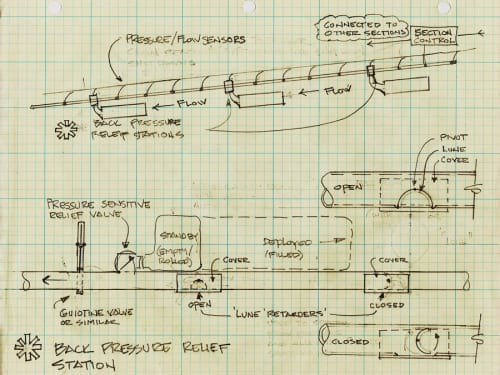 CONNECTED TO
OTHER SECTIONS
SECTION
CONTROL
PRESSURE/FLOW SENSORS
FLOW
FLOW
BACK PRESSURE
RELIEF STATIONS
PIVOT
LUNE
COVER
OPEN
PRESSURE SENSITIVE
RELIEF VALVE
STANDBY
(EMPTY/
ROLLED)
DEPLOYED
(FILLED)
COVER
COVER
GUIOTINE VALVE
OR SIMILAR
OPEN
'LUNE RETARDERS'
CLOSED
CLOSED
BACK PRESSURE RELIEF
STATION